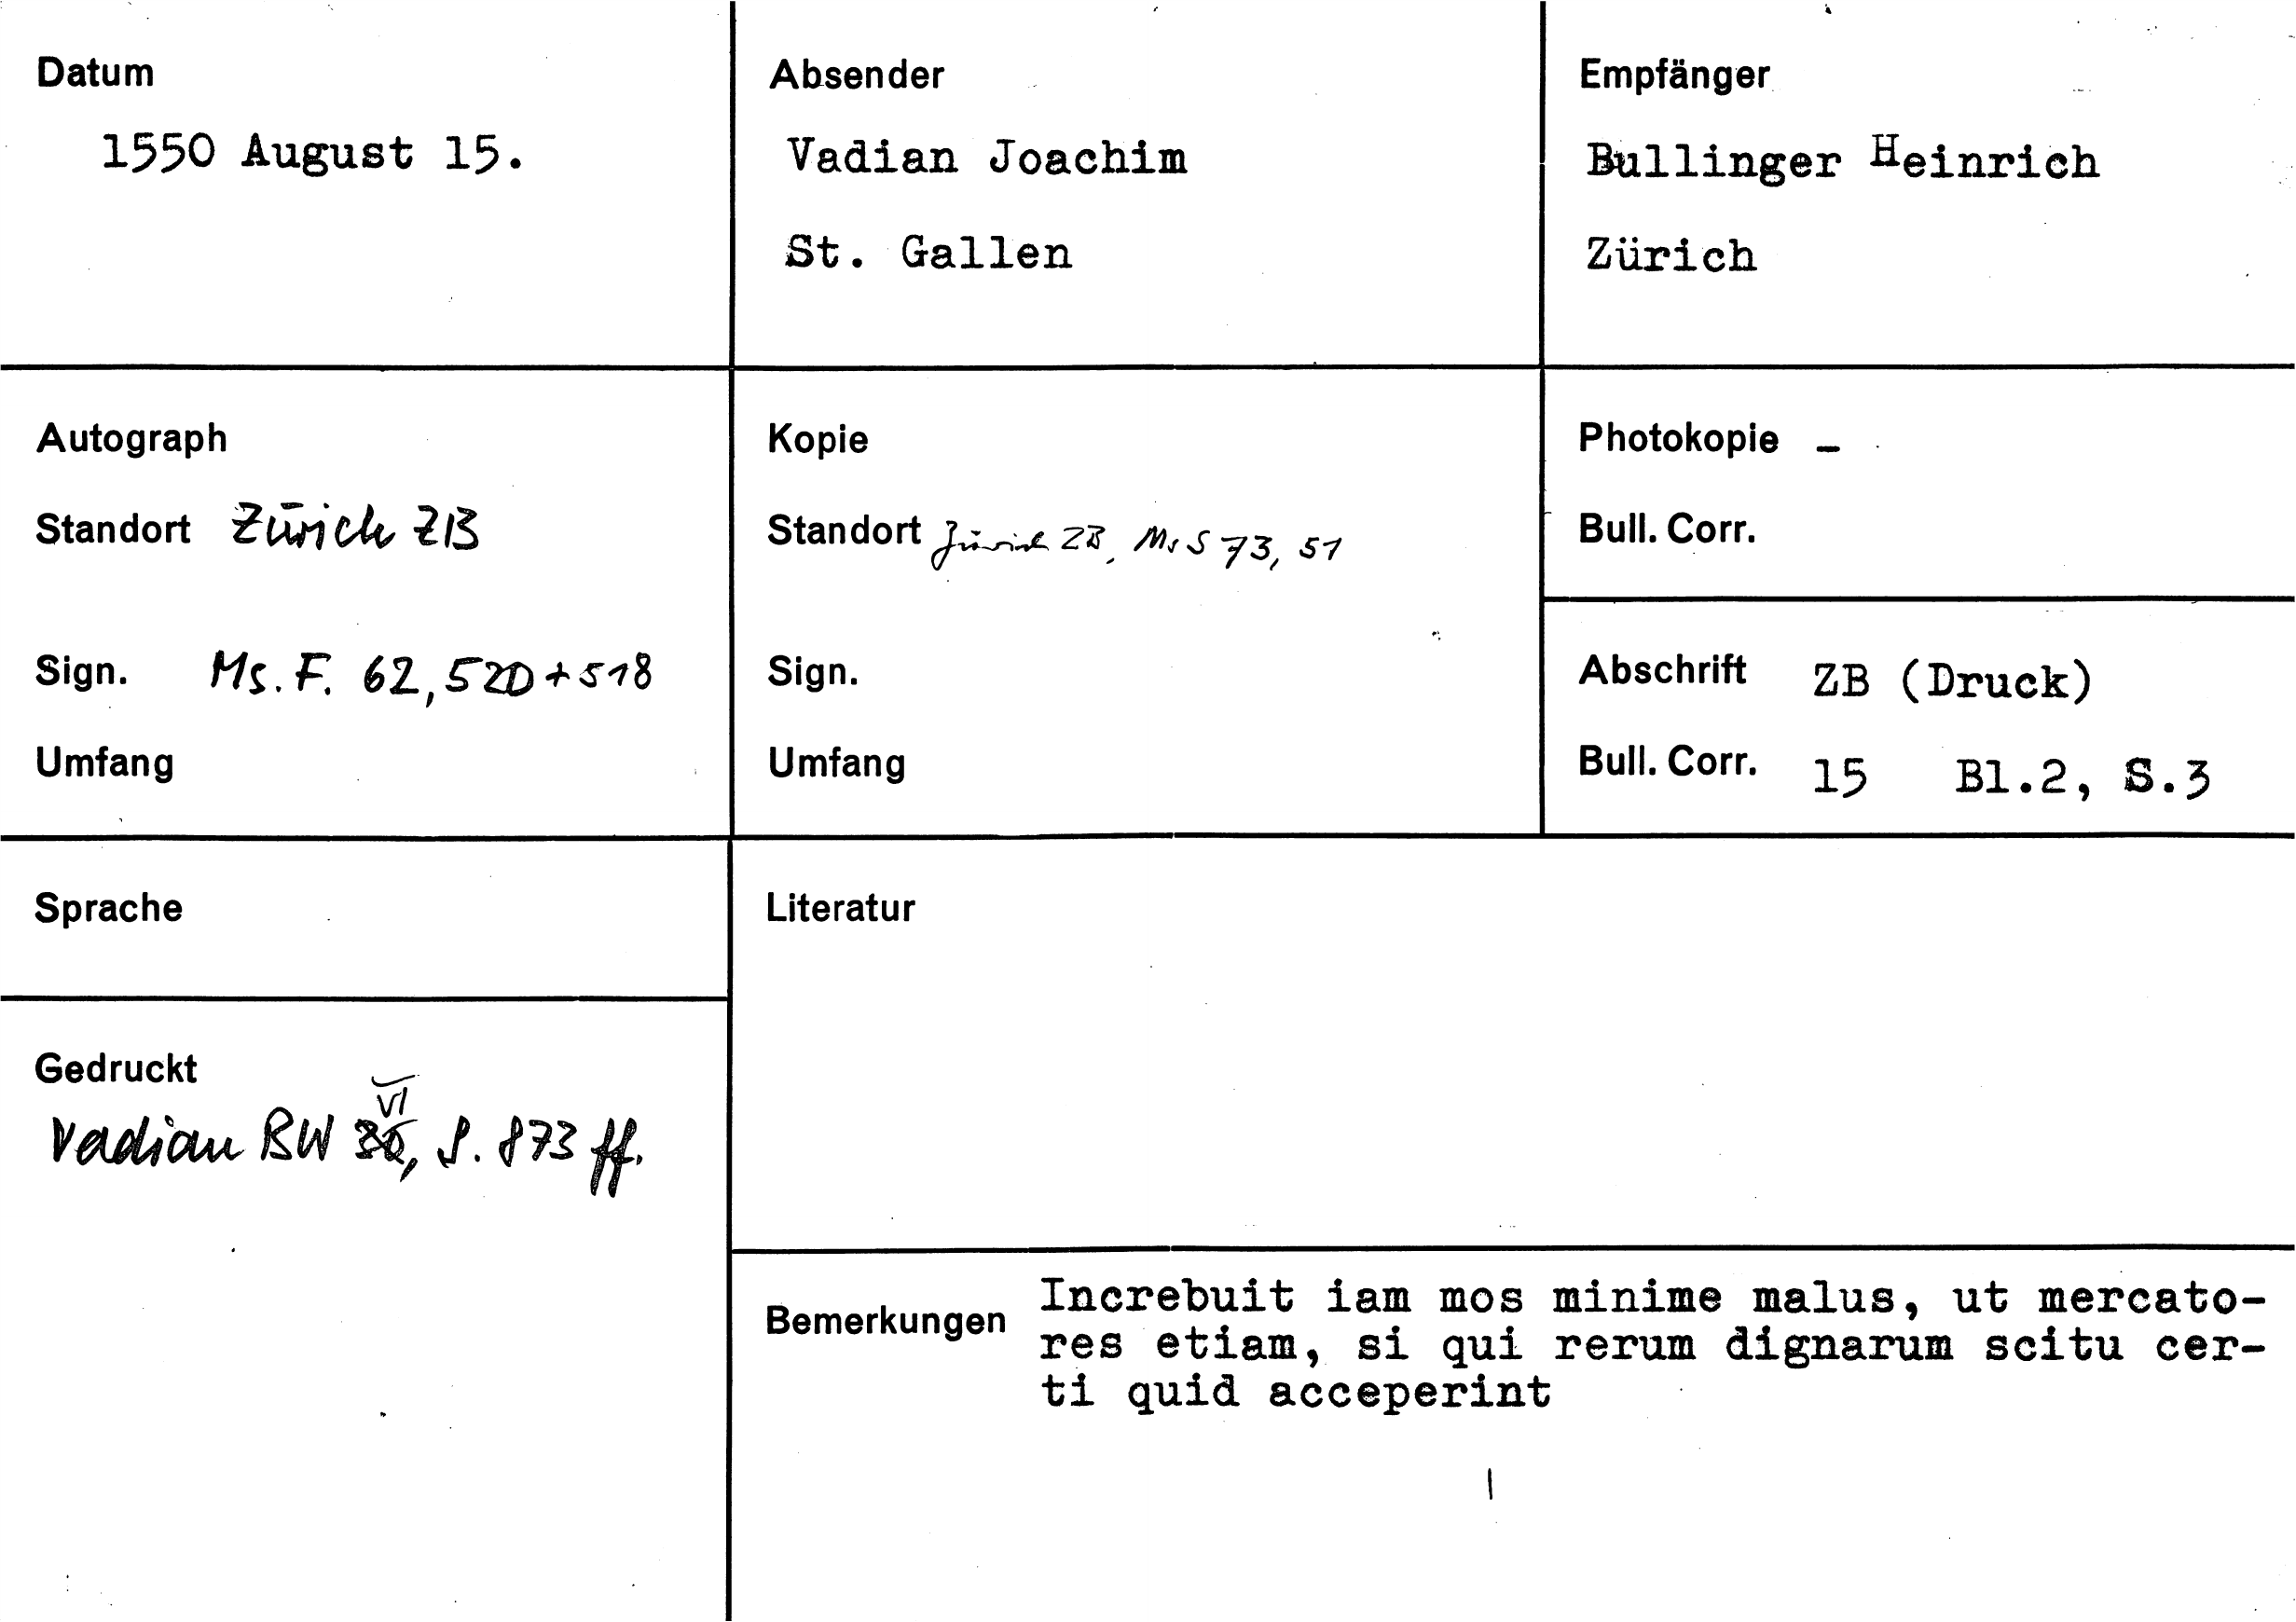 Datum
1550 August 15.
Absender
Vadian Joachim
St. Gallen
Empfänger
Bullinger Heinrich
Zürich
Autograph
Standort Zürich ZB
Sign. Ms. F. 62, 520 + 518
Umfang
Kopie
Standort Zürich ZB, Ms S 73, 51
Sign.
Umfang
Photokopie –
Bull. Corr.
Abschrift ZB (Druck)
Bull. Corr. 15 Bl.2, S.3
Sprache
Gedruckt
VI
Vadian BW, S. 873 ff.
Literatur
Bemerkungen
Increbuit iam mos minime malus, ut mercato-
res etiam, si qui rerum dignarum scitu cer-
ti quid acceperint